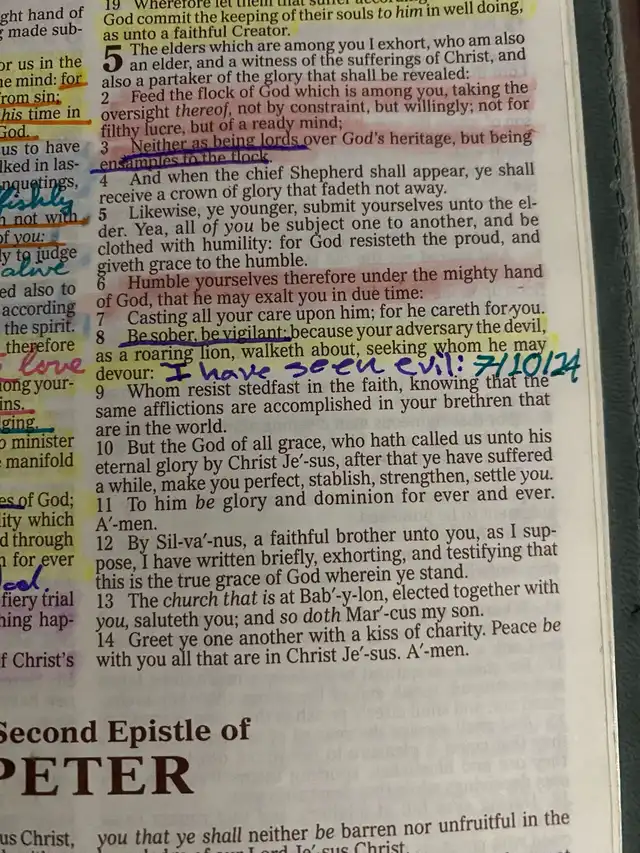 ght hand of
g made sub-
or us in the
ne mind: for
from sin;
his time in
God.
us to have
lked in las-
nquetings,
n not with
of you:
ly to judge
alive
ed also to
according
the spirit.
therefore
love
ong your-
ins.
ging.
o minister
manifold
es of God;
lity which
d through
n for ever
fiery trial
hing hap-
f Christ's
19 Wherefore let them that suffer according
God commit the keeping of their souls to him in well doing,
as unto a faithful Creator.
5 The elders which are among you I exhort, who am also
an elder, and a witness of the sufferings of Christ, and
also a partaker of the glory that shall be revealed:
2 Feed the flock of God which is among you, taking the
oversight thereof, not by constraint, but willingly; not for
filthy lucre, but of a ready mind;
3 Neither as being lords over God's heritage, but being
ensamples to the flock.
4 And when the chief Shepherd shall appear, ye shall
receive a crown of glory that fadeth not away.
5 Likewise, ye younger, submit yourselves unto the el-
der. Yea, all of you be subject one to another, and be
clothed with humility: for God resisteth the proud, and
giveth grace to the humble.
6 Humble yourselves therefore under the mighty hand
of God, that he may exalt you in due time:
7 Casting all your care upon him; for he careth for you.
8 Be sober, be vigilant; because your adversary the devil,
as a roaring lion, walketh about, seeking whom he may
devour: I have seen evil: 7/10/24
9 Whom resist stedfast in the faith, knowing that the
same afflictions are accomplished in your brethren that
are in the world.
10 But the God of all grace, who hath called us unto his
eternal glory by Christ Je′-sus, after that ye have suffered
a while, make you perfect, stablish, strengthen, settle you.
11 To him be glory and dominion for ever and ever.
A′-men.
12 By Sil-va′-nus, a faithful brother unto you, as I sup-
pose, I have written briefly, exhorting, and testifying that
this is the true grace of God wherein ye stand.
13 The church that is at Bab′-y-lon, elected together with
you, saluteth you; and so doth Mar′-cus my son.
14 Greet ye one another with a kiss of charity. Peace be
with you all that are in Christ Je′-sus. A′-men.
Second Epistle of
PETER
us Christ,
you that ye shall neither be barren nor unfruitful in the
Lord Je′-sus Christ.